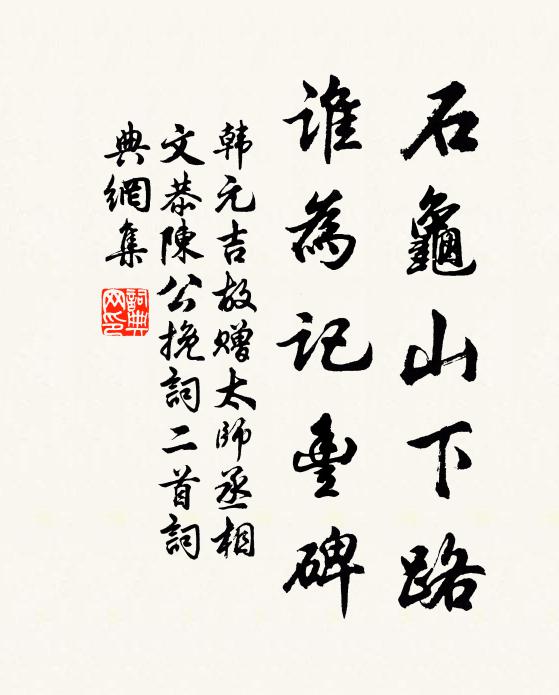 石龜山下路
誰為記豊碑
韩元吉故贈太師丞相
文恭陳公挽詞二首詞
典網集
詞典网印